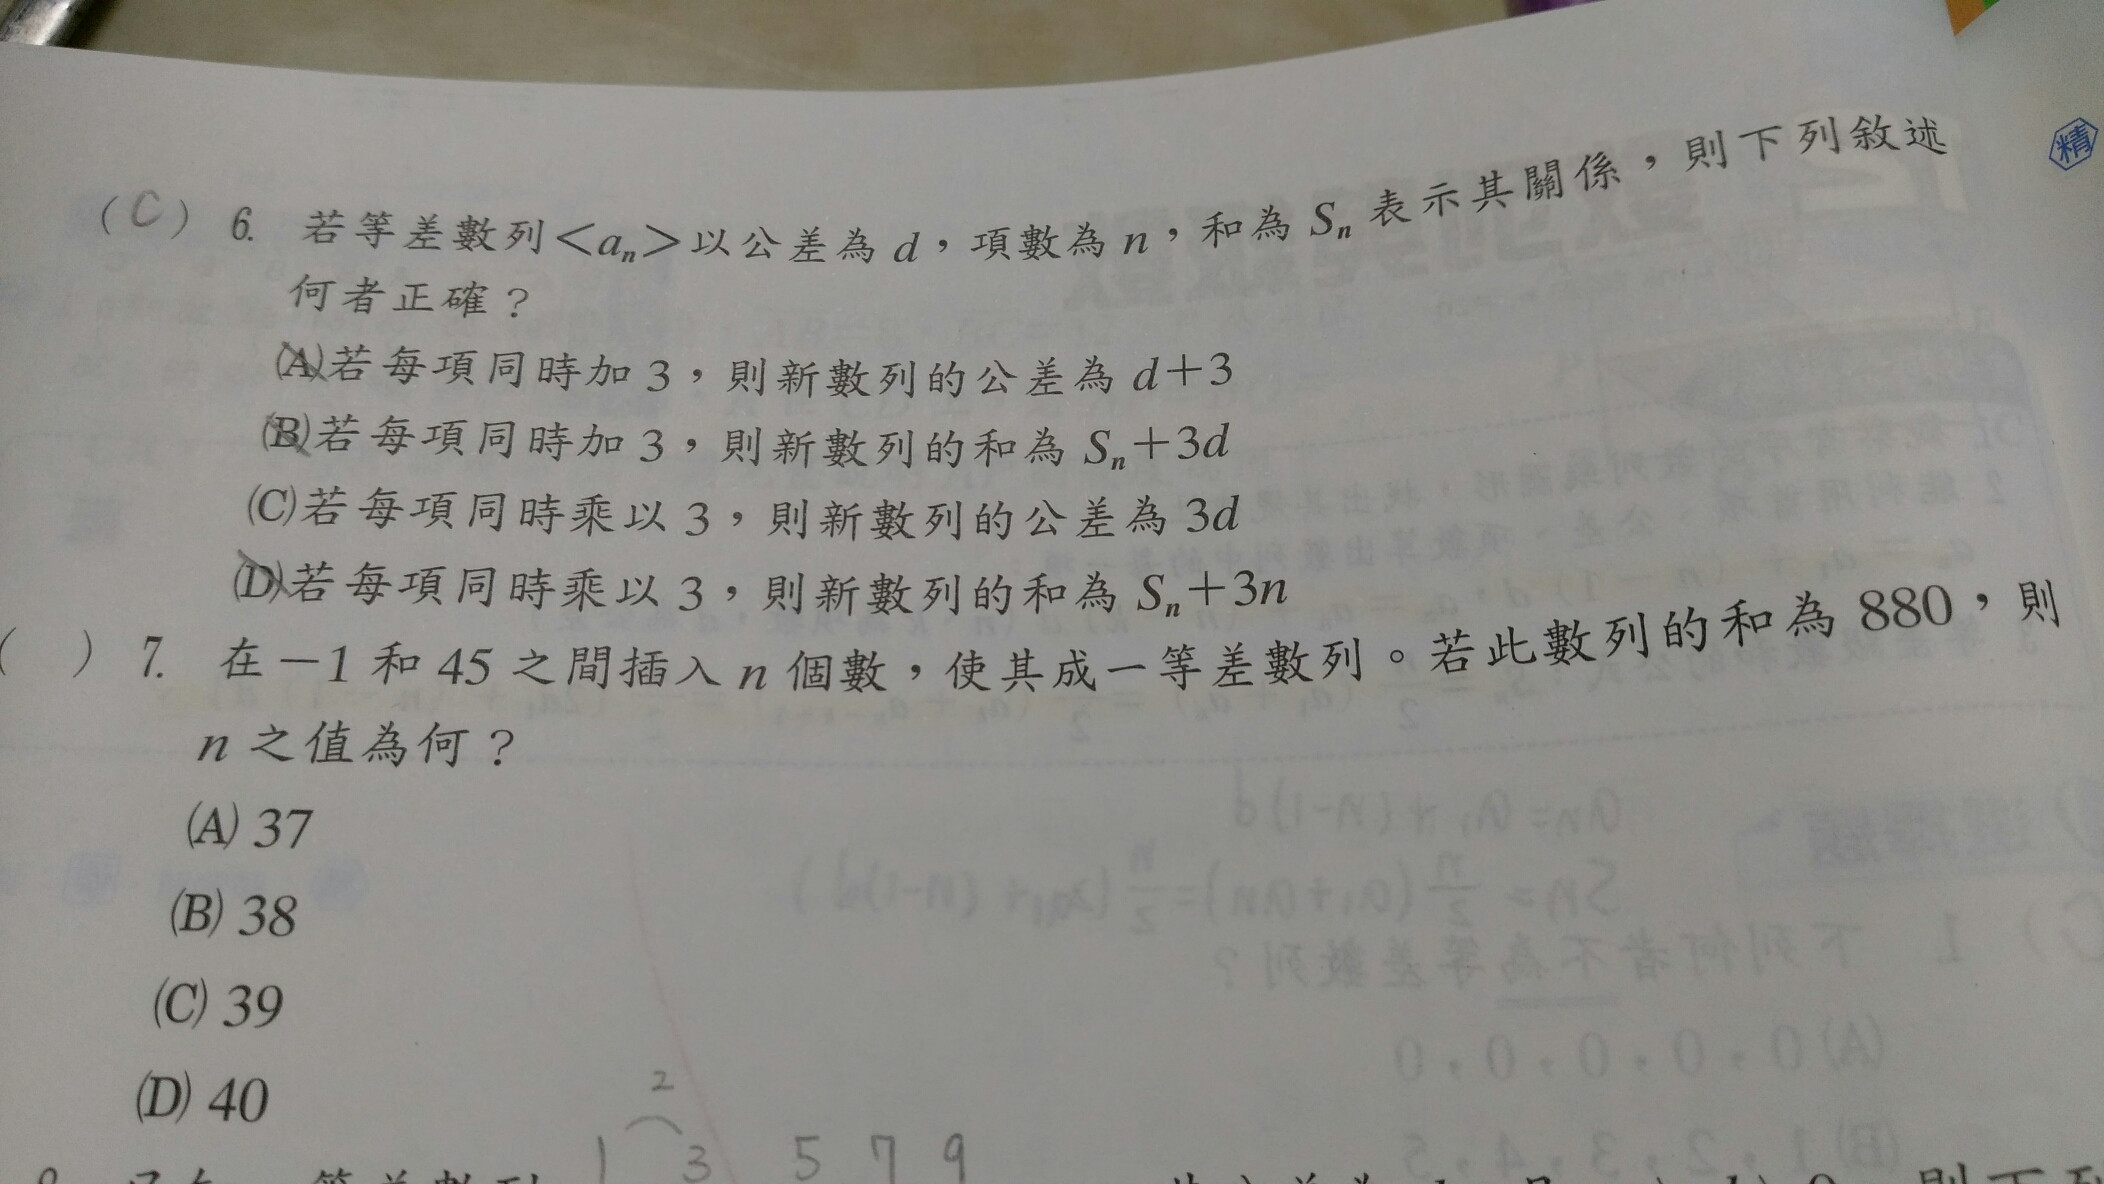 精
(C) 6. 若等差數列<aₙ>以公差為 d，項數為 n，和為 Sₙ 表示其關係，則下列敘述
何者正確？
(A)若每項同時加 3，則新數列的公差為 d＋3
(B)若每項同時加 3，則新數列的和為 Sₙ＋3d
(C)若每項同時乘以 3，則新數列的公差為 3d
(D)若每項同時乘以 3，則新數列的和為 Sₙ＋3n
( ) 7. 在－1 和 45 之間插入 n 個數，使其成一等差數列。若此數列的和為 880，則
n 之值為何？
(A) 37
(B) 38
(C) 39
(D) 40
2
1 3 5 7 9